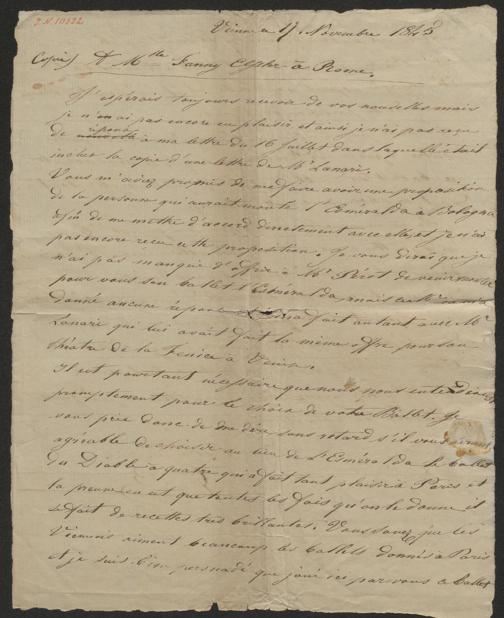 J.N. 10522
Vienne 17. Novembre 1845
(Copie) A Mlle Fanny Elsler à Rome.
J'espérais toujours recevoir de vos nouvelles mais
je n'en ai pas encore eu plaisir et ainsi je n'ai pas reçu
réponse
de à ma lettre du 16 Juillet dans laquelle était
inclus la copie d'une lettre de Mr Lanari.
Vous m'aviez promis de me faire avoir une proposition
de la personne qui aurait monté l'Esméralda à Bologne
afin de me mettre d'accord directement avec elle, et je n'ai
pas encore reçu cette proposition. Je vous dirai que je
n'ai pas manqué d'offrir à Mr. Perrot de venir monter
pour vous son Ballet l'Esméralda mais ce Mr ne m'a
donné aucune réponse fait autant avec Mr
Lanari qui lui avait fait la même offre pour son
théâtre de la Fenice à Venise.
Il est pourtant nécessaire que nous nous entendions
promptement pour le choix de votre Ballet. Je
vous prie donc de me dire sans retard s'il vous
agréable de choisir au lieu de l'Esméralda le ballet
du Diable à quatre qui a fait tant plaisir à Paris et
la preuve en est que toutes les fois qu'on le donne il
se fait de recettes très brillantes. Vous savez que les
Viennois aiment beaucoup les ballets donnés à Paris
et je suis bien persuadé que joué ici par vous ce ballet